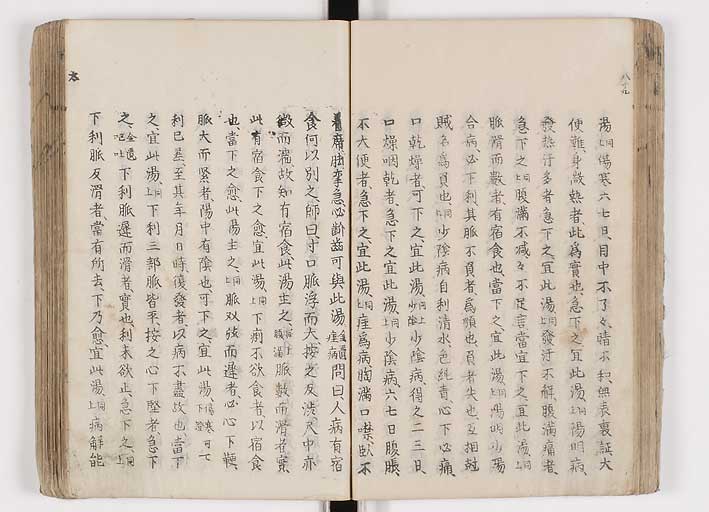 湯同上傷寒六七日目中不了々睛不和無表裏証大
便難身微熱者此為實也急下之宜此湯同上陽明病
發熱汗多者急下之宜此湯同上發汗不解腹滿痛者
急下之同上腹滿不減々不足言當宜下之宜此湯同上
脈滑而數者有宿食也當下之宜此湯同上陽明少陽
合病必下利其脈不負者為順也負者失也互相尅
賊名為負也同上少陰病自利清水色純青心下必痛
口乾燥者可下之宜此湯同上少陰病得之二三日
口燥咽乾者急下之宜此湯同上少陰病六七日腹脹
不大便者急下之宜此湯同上痓為病胸滿口噤臥不
着席脚攣急必齘齒可與此湯金匱痙病問曰人病有宿
食何以別之師曰寸口脈浮而大按之反渋尺中亦
微而濇故知有宿食此湯主之同上脈數而滑者實
此有宿食下之愈宜此湯同上下痢不欲食者以宿食
也當下之愈此湯主之同上脈双弦而遲者必心下鞕
脈大而緊者陽中有陰也可下之宜此湯傷寒可下
利已差至其年月日時復發者以病不盡故也當下
之宜此湯同上下利三部脈皆平按之心下堅者急下
之金匱吐下利脈遲而滑者實也利未欲止急下之同上
下利脈反滑者當有所去下乃愈宜此湯同上病解能